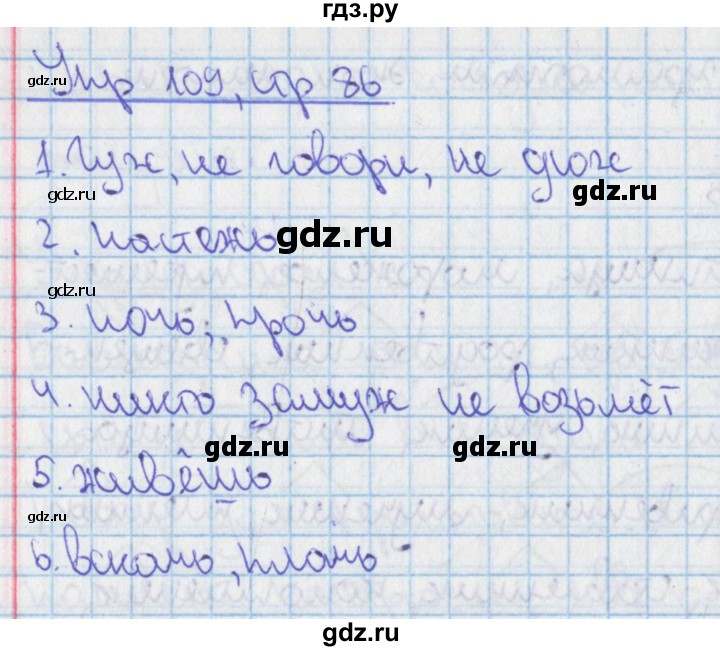 гдз.ру
gdz.ru
Упр 109, стр 86
1. Гуж, не говори, не дюж
gdz.ru
2. настежь
gdz.ru
gdz.ru
3. ночь, прочь
4. никто замуж не возьмёт
gdz.ru
gdz.ru
5. живёшь
gdz.ru
6. вскачь, плачь
gdz.ru